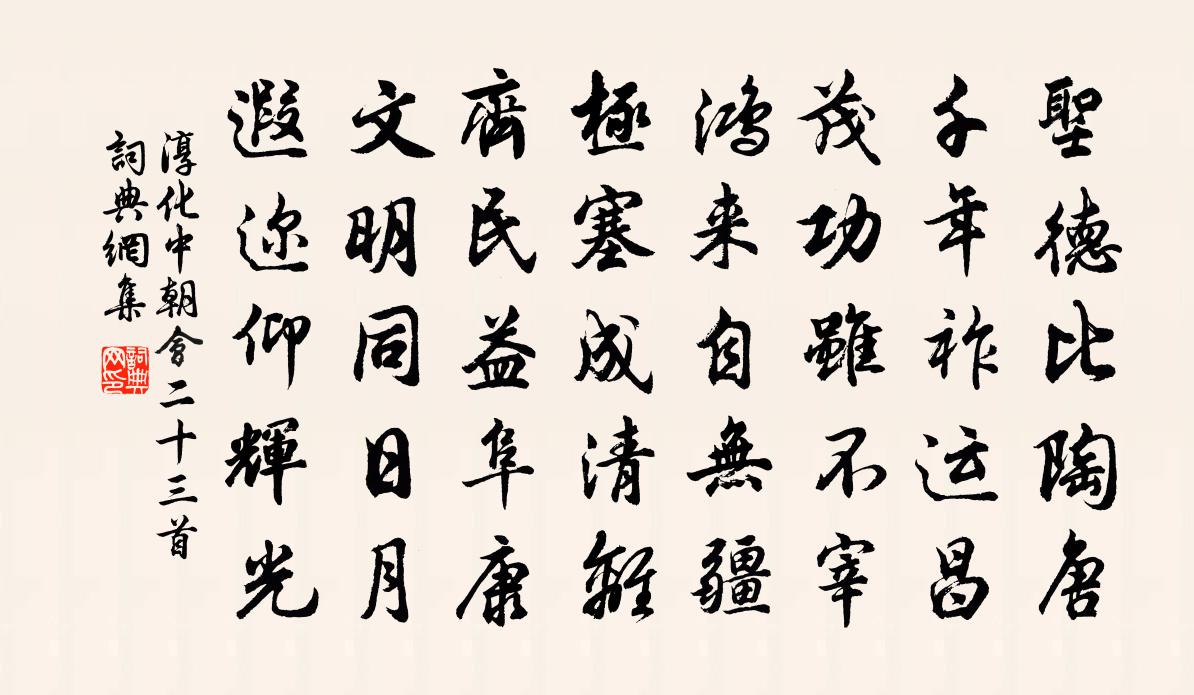 聖德比陶唐
千年祚运昌
茂功雖不宰
鴻来自無疆
極塞成清雜
齊民益阜康
文明同日月
遐迩仰輝光
淳化中朝會二十三首
詞典網集
詞典网印